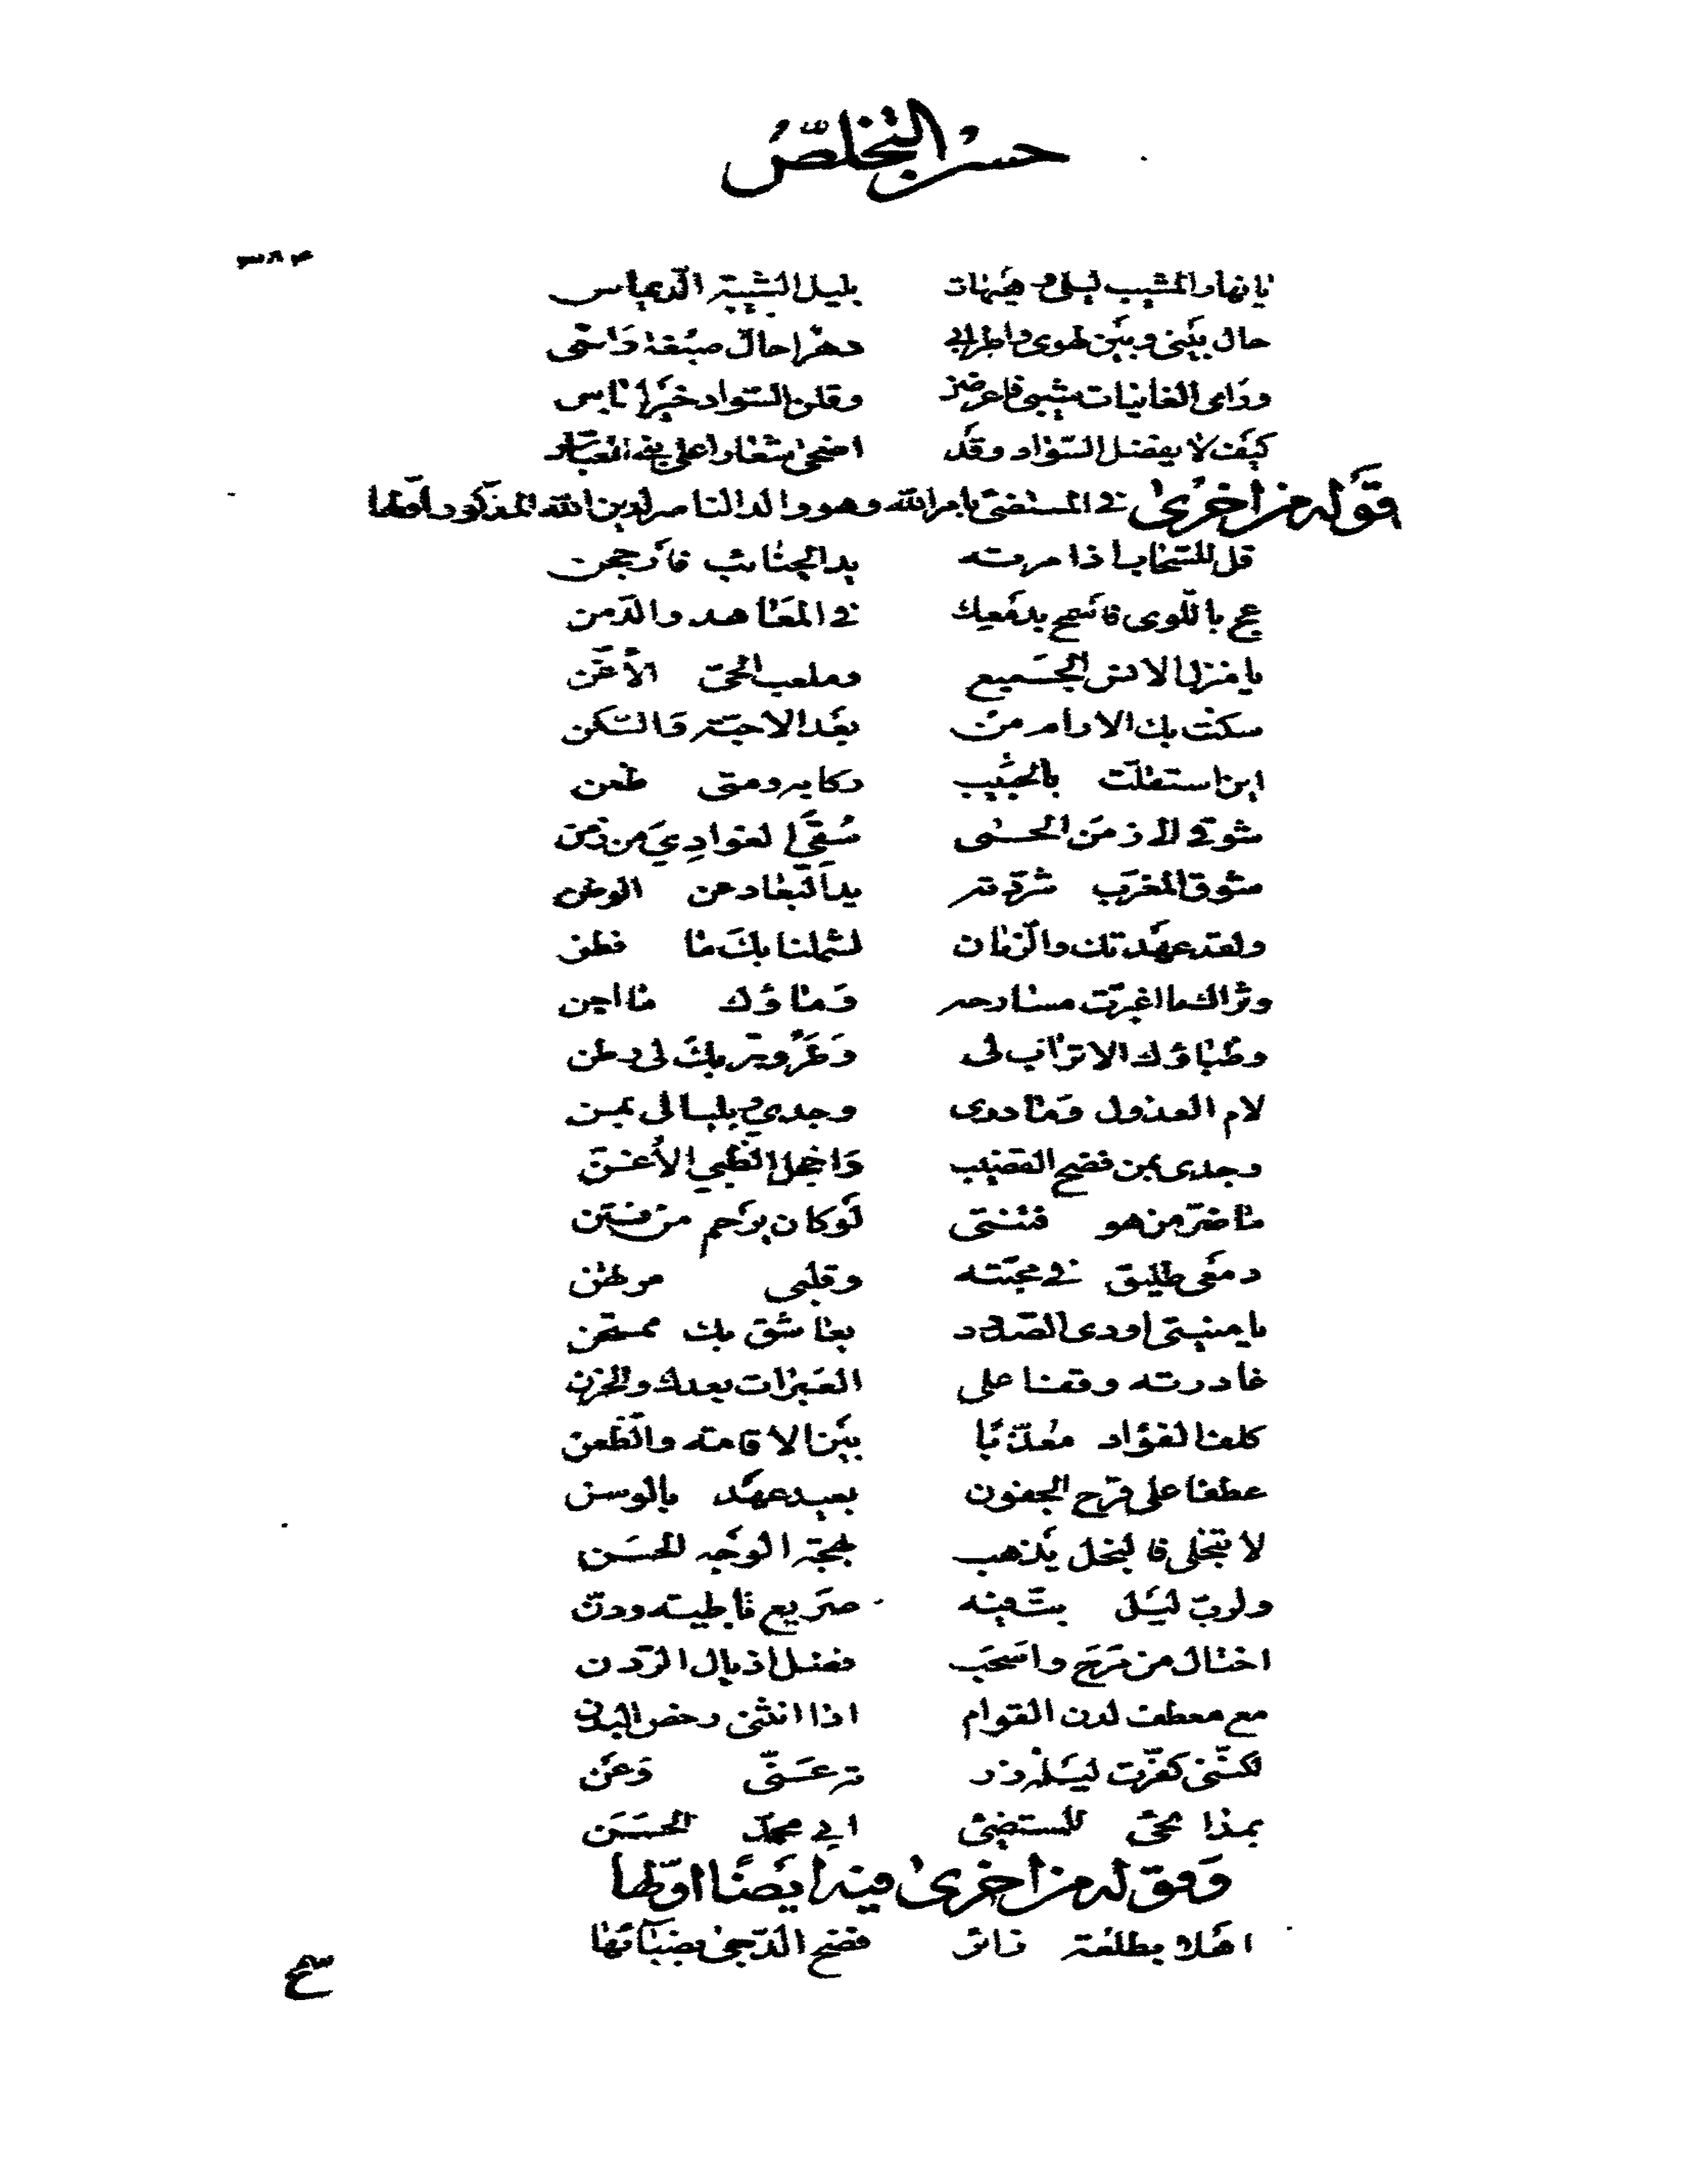 حسن التخلّص
يا نهار المشيب ليلى وهيهات بليل الشبيبة الديماس
حال بيني وبين لهوي واطرابي دهر احال صبغة راسي
وراى الغانيات شيبي فاعرضن وقلن السّواد خير لباس
كيف لا يفضل السّواد وقد اضحى شعارا على بني العبّاس
قوله من اخرى في المستضئ بامر الله وهو والد الناصر لدين الله المذكور اوّلها
قل للسّحاب اذا مرته يد الجنائب فارجحن
عج باللّوى فاسمح بدمعك في المعاهد والدّمن
يا منزل الانس الجميع وملعب الحيّ الأغن
سكنت بك الارام من بعد الاحبّة والسّكن
اين استقلّت بالحبيب ركابه ومتى ظعن
شوقي الى زمن الحمى سُقي الغوادي من زمن
شوق المغرّب شرّدته يد البعاد عن الوطن
ولقد عهدتك والزّمان لشملنا بك ما فطن
وثراك ما اغبرّت مسارحه وماؤك ما اجن
وظباؤك الاتراب لي وطر وتربك لي وطن
لام العذول وما درى وجدي وبلبالي بمن
وجدي بمن فضح القضيب واخجل الظّبي الأغنّ
ما ضرّ من هو فتنتي لو كان يرحم من فتن
دمعي طليق في محبّته وقلبي مرتهن
يا منيتي اودى الصّدود بعاشق بك ممتحن
غادرته وقفا على العبرات بعدك والحزن
كلف الفؤاد معذّبا بين الاقامة والظّعن
عطفا على قرح الجفون بعيد عهد بالوسن
لا تبخلي فالبخل يذهب بهجة الوجه الحسن
ولربّ ليل بتّ فيه صريع باطية ودنّ
اختال من مرح واسحب فضل اذيال الرّدن
مع معطف لدن القوام اذا انثنى رخص البدن
لكنّني كفّرت ليلة زرته عنّي وعن
بمدائحي للمستضئ ابي محمّد الحسن
وقوله من اخرى فيه ايضًا اوّلها
اهلا بطلعة زائر فضح الدّجى بضيائها
سمح